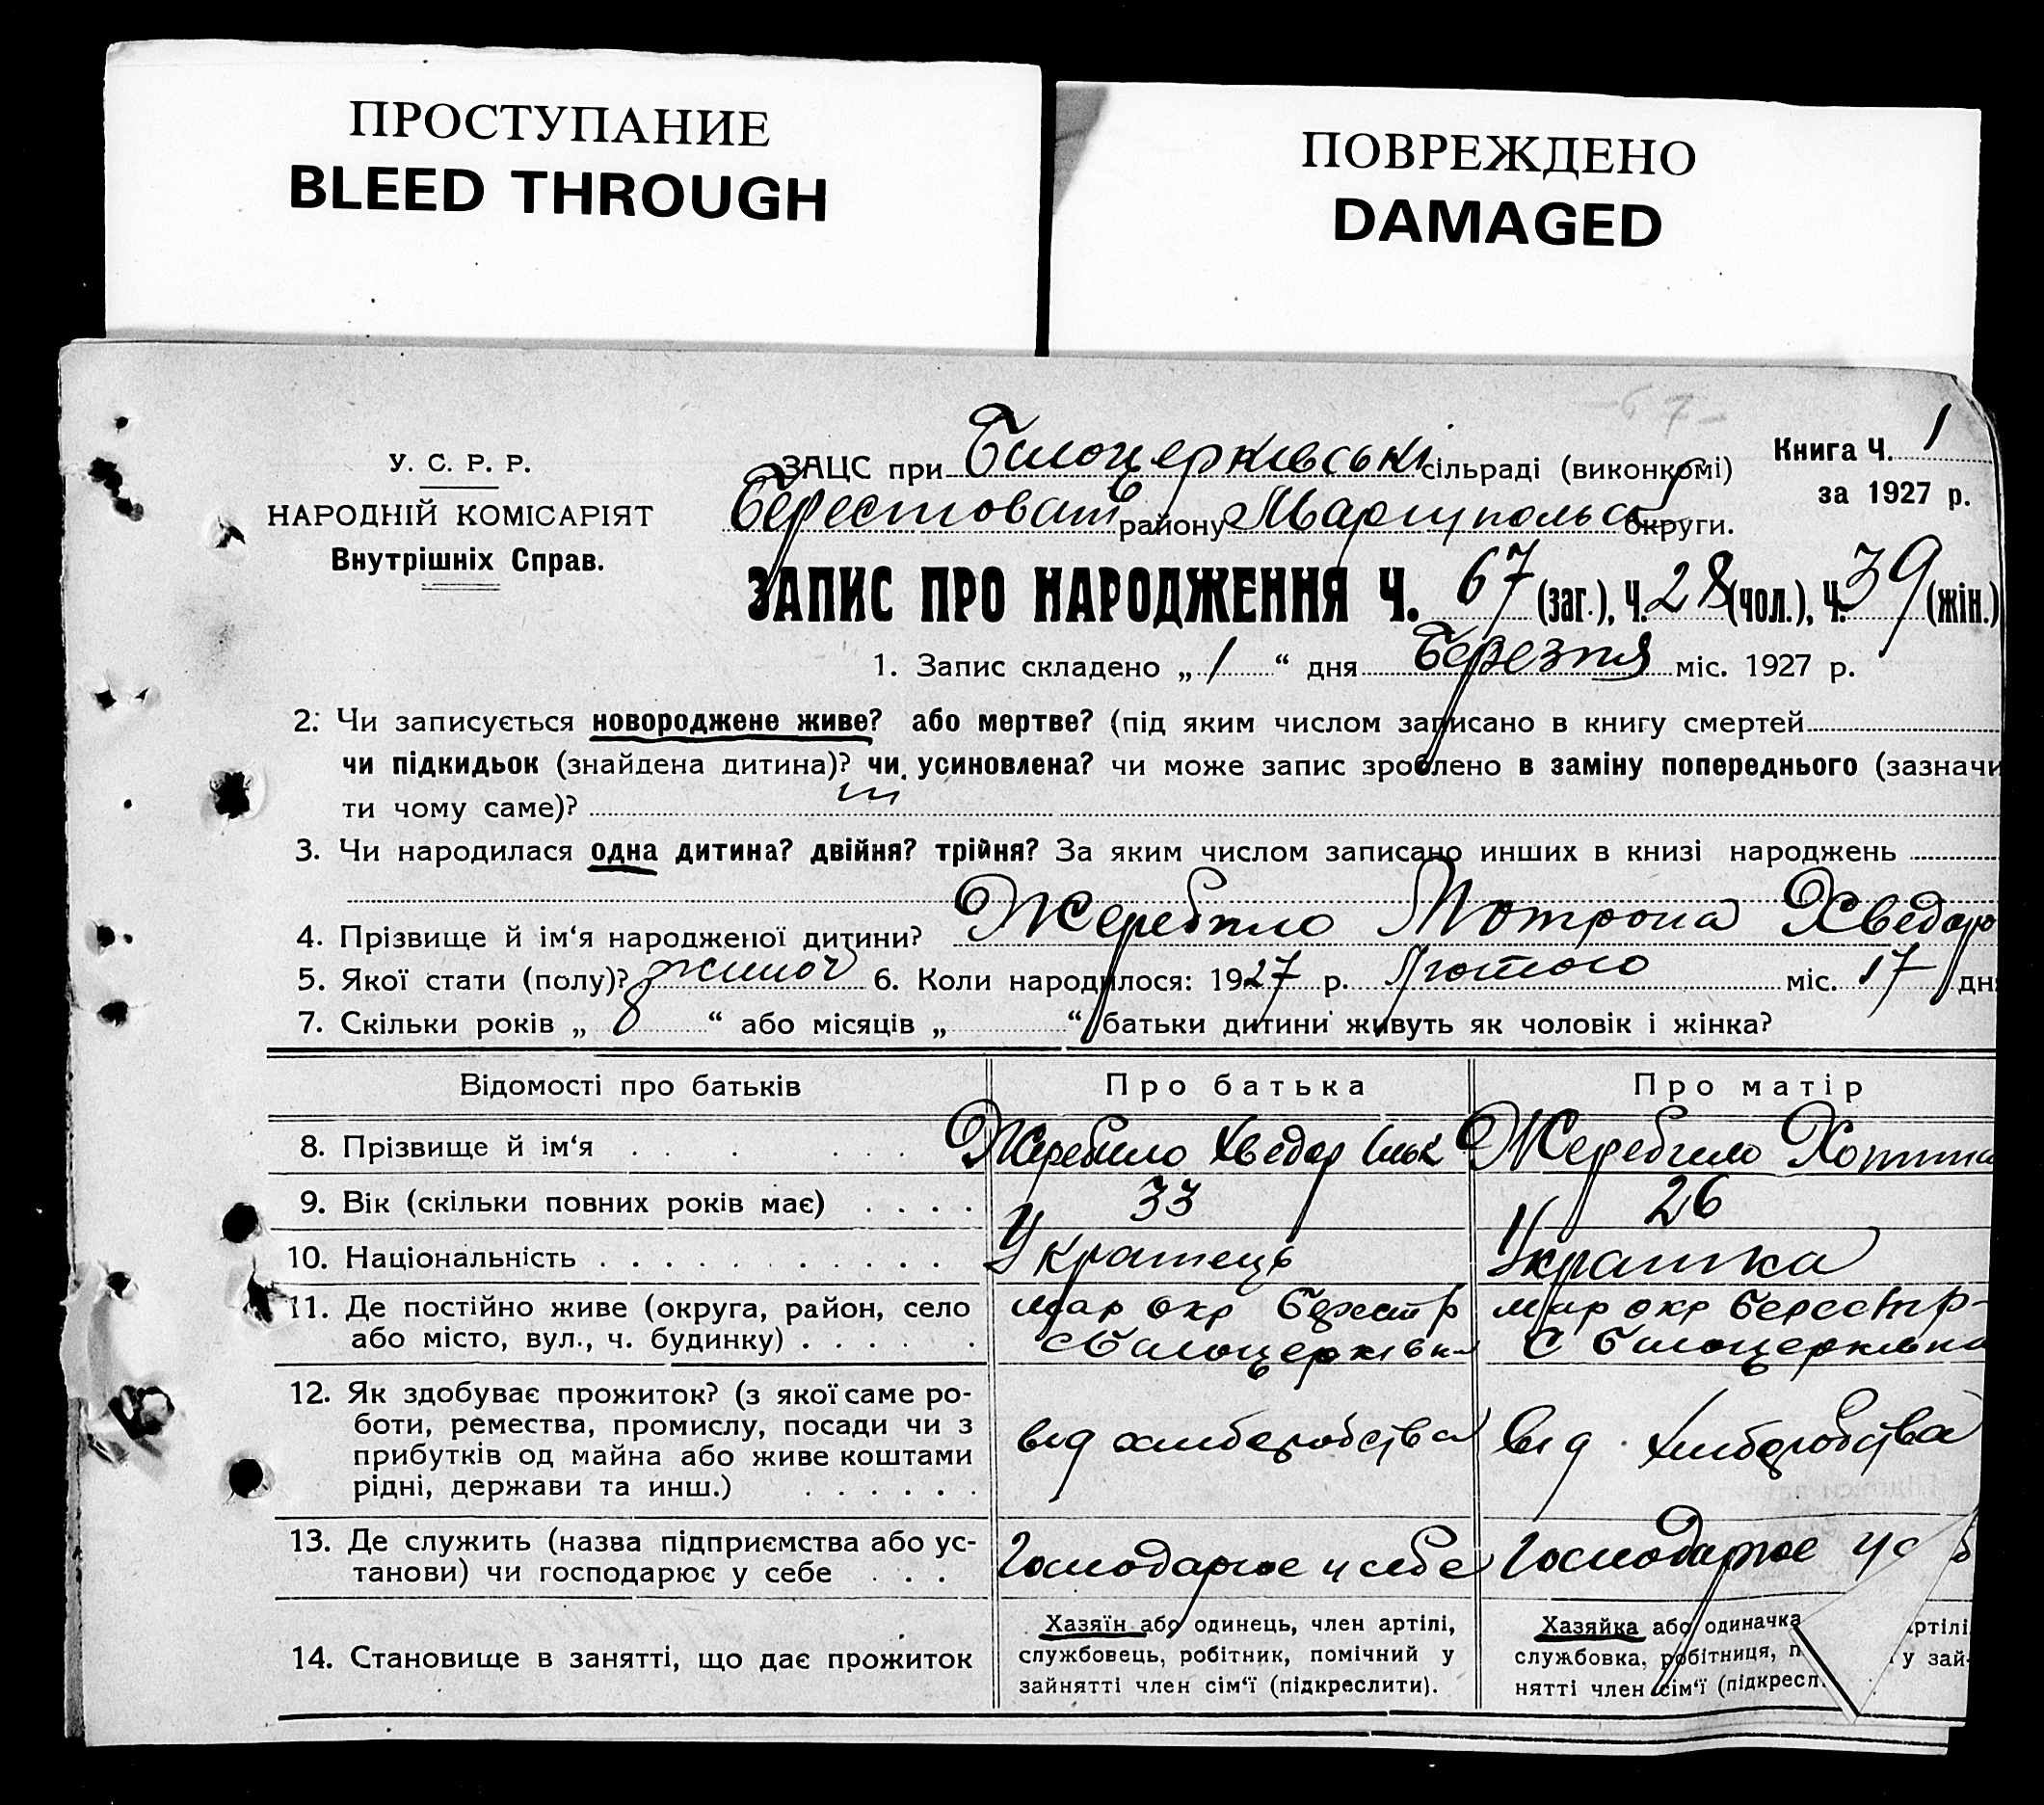 ПРОСТУПАНИЕ
BLEED THROUGH
ПОВРЕЖДЕНО
DAMAGED
67
У. С. Р. Р.
НАРОДНІЙ КОМІСАРІЯТ
Внутрішніх Справ.
ЗАЦС при Білоцерківські сільраді (виконкомі)
Книга Ч. 1
за 1927 р.
Берестоват району Маріупольс округи.
ЗАПИС ПРО НАРОДЖЕННЯ Ч. 67 (заг.), Ч. 28 (чол.), Ч. 39 (жін.)
1. Запис складено „ 1 “ дня Березня міс. 1927 р.
2. Чи записується новороджене живе? або мертве? (під яким числом записано в книгу смертей
чи підкидьок (знайдена дитина)? чи усиновлена? чи може запис зроблено в заміну попереднього (зазначи
ти чому саме)?
3. Чи народилася одна дитина? двійня? трійня? За яким числом записано инших в книзі народжень
4. Прізвище й ім‘я народженої дитини? Жеребило Мотрона Хведоро
5. Якої стати (полу)? жиноч 6. Коли народилося: 1927 р. Лютого міс. 17 дн
7. Скільки років „ 8 “ або місяців „ “ батьки дитини живуть як чоловік і жінка?
Відомості про батьків Про батька Про матір
8. Прізвище й ім‘я Жеребило Хведор Жеребило
9. Вік (скільки повних років має) 33 26
10. Національність Украінець Украінка
11. Де постійно живе (округа, район, село
або місто, вул., ч. будинку)
мар окр Берест р
с Билоцерківка
мар окр Берест р-
с Билоцерківка
12. Як здобуває прожиток? (з якої саме ро-
боти, ремества, промислу, посади чи з
прибутків од майна або живе коштами
рідні, держави та инш.)
від хлиборобства
від хлиборобства
13. Де служить (назва підприємства або ус-
танови) чи господарює у себе
Господарює у себе
Господарює у с б
14. Становище в занятті, що дає прожиток
Хазяїн або одинець, член артілі,
службовець, робітник, помічний у
зайнятті член сім‘ї (підкреслити).
Хазяйка або одиначка ртілі
службовка, робітниця, п у зай-
нятті член сім‘ї (підкресл.